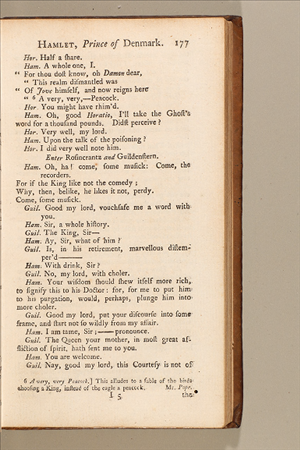 HAMLET, Prince of Denmark. 177
Hor. Half a ſhare.
Ham. A whole one, I.
" For thou doſt know, oh Dæmon dear,
" This realm diſmantled was
" Of Jove himſelf, and now reigns here
" 6 A very, very,—Peacock.
Hor. You might have rhim'd.
Ham. Oh, good Horatio, I'll take the Ghoſt's
word for a thouſand pounds. Didſt perceive ?
Hor. Very well, my lord.
Ham. Upon the talk of the poiſoning ?
Hor. I did very well note him.
Enter Roſincrantz and Guildenſtern.
Ham. Oh, ha! come, ſome muſick: Come, the
recorders.
For if the King like not the comedy ;
Why, then, belike, he likes it not, perdy.
Come, ſome muſick.
Guil. Good my lord, vouchſafe me a word with
you.
Ham. Sir, a whole hiſtory.
Guil. The King, Sir—
Ham. Ay, Sir, what of him ?
Guil. Is, in his retirement, marvellous diſtem-
per'd———
Ham. With drink, Sir?
Guil. No, my lord, with choler.
Ham. Your wiſdom ſhould ſhew itſelf more rich,
to ſignify this to his Doctor: for, for me to put him
to his purgation, would, perhaps, plunge him into
more choler.
Guil. Good my lord, put your diſcourſe into ſome
frame, and ſtart not ſo wildly from my affair.
Ham. I am tame, Sir ;——pronounce.
Guil. The Queen your mother, in moſt great af-
fliction of ſpirit, hath ſent me to you.
Ham. You are welcome.
Guil. Nay, good my lord, this Courteſy is not of
6 A very, very Peacock.] This alludes to a fable of the birds
chooſing a King, inſtead of the eagle a peacock. Mr. Pope.
I 5 the